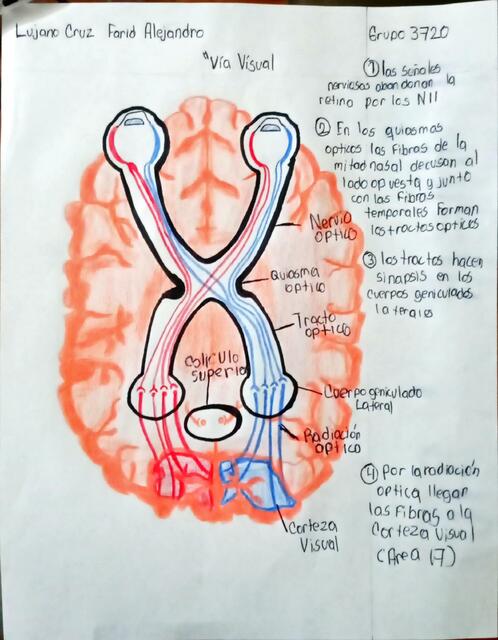 Lujano Cruz Farid Alejandro
Grupo 3720
"Vía Visual
① las señales
nerviosas abandonan la
retina por los NII
② En los quiosmas
opticos las fibras de la
mitad nasal decusan al
lado opuesta y junto
con las fibras
temporales forman
los tractos opticos
③ los tractos hacen
sinapsis en los
cuerpos geniculados
laterales
④ Por la radiación
optica llegan
las fibras a la
Corteza Visual
(Area 17)
Nervio
optico
Quiosma
optico
Tracto
optico
Colículo
superio
Cuerpo geniculado
Lateral
Radiación
optico
Corteza
Visual